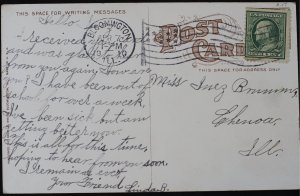 THIS SPACE FOR WRITING MESSAGES
Hello
I received
and was glad
from you again. How are
you? I have been out of
school for over a week,
have been sick but am
getting better now.
This is all for this time,
hoping to hear from you soon.
I remain as ever
Your Friend
BLOOMINGTON
POST CARD
THIS SPACE FOR ADDRESS ONLY
Miss Inez
Chenoa,
Ill.